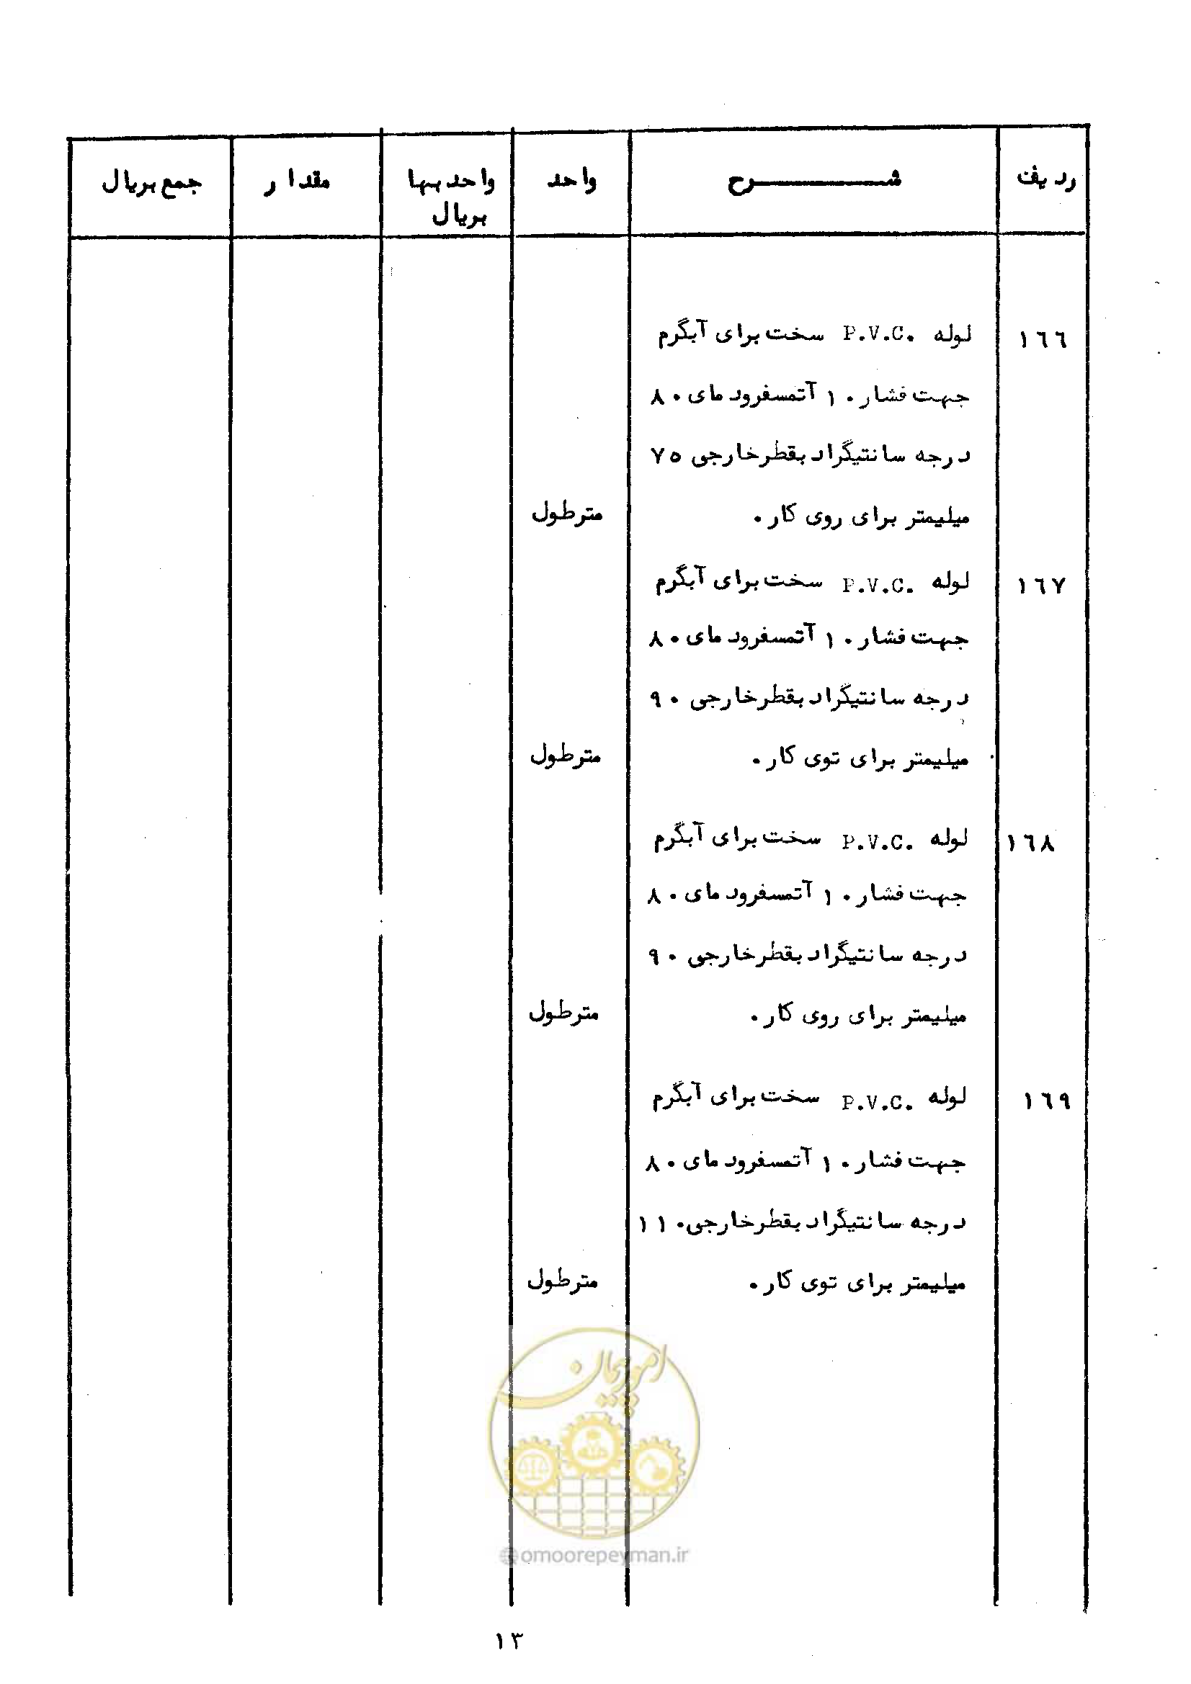 ردیف شرح واحد واحد بها مقدار جمع بریال
بریال
۱۶۶ لوله P.V.C. سخت برای آبگرم
جهت فشار ۱۰ آتمسفرود مای ۸۰
درجه سانتیگراد بقطر خارجی ۷۵
میلیمتر برای روی کار. متر طول
۱۶۷ لوله P.V.C. سخت برای آبگرم
جهت فشار ۱۰ آتمسفرود مای ۸۰
درجه سانتیگراد بقطر خارجی ۹۰
میلیمتر برای توی کار. متر طول
۱۶۸ لوله P.V.C. سخت برای آبگرم
جهت فشار ۱۰ آتمسفرود مای ۸۰
درجه سانتیگراد بقطر خارجی ۹۰
میلیمتر برای روی کار. متر طول
۱۶۹ لوله P.V.C. سخت برای آبگرم
جهت فشار ۱۰ آتمسفرود مای ۸۰
درجه سانتیگراد بقطر خارجی ۱۱۰
میلیمتر برای توی کار. متر طول
امور پیمان
omoorepeyman.ir
۱۳